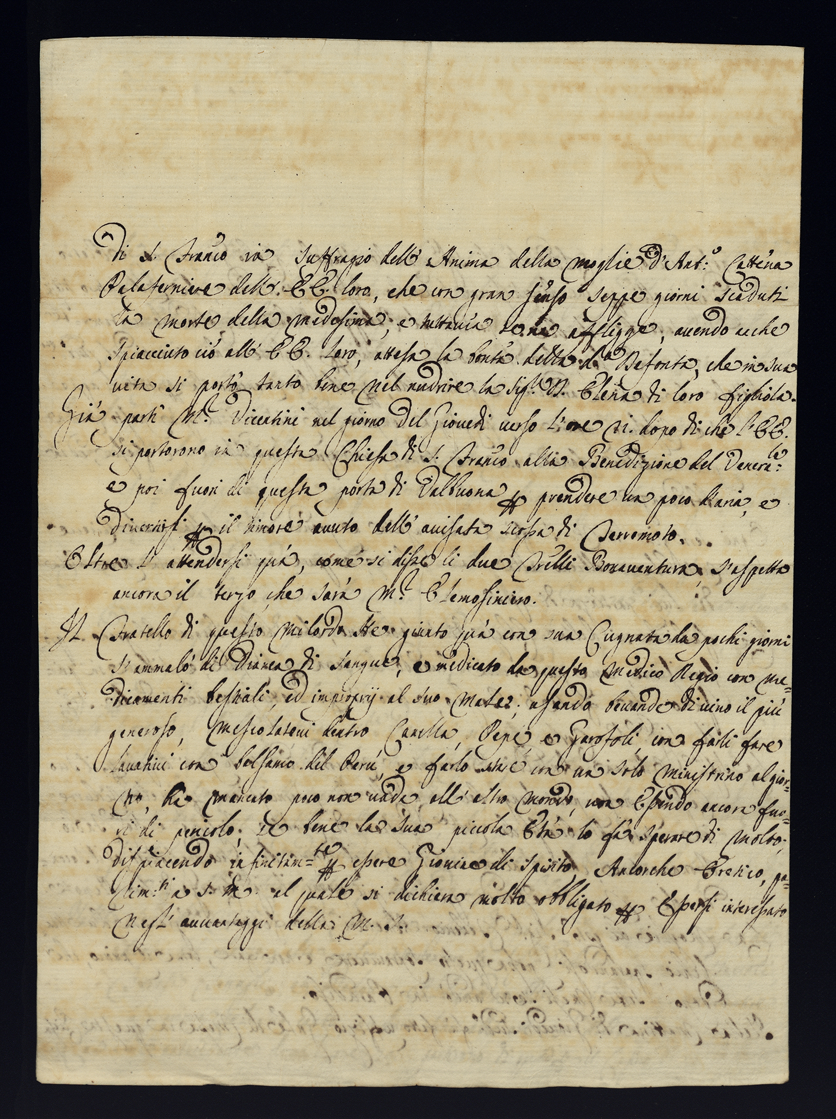 Di S. Franco in Suffragio dell' Anima della moglie d'Ant.o Cattena
Palaferniere dell' EE. loro, che con gran senso seppe giorni scaduti
la morte della medesima, e tuttavia se ne affligge, avendo anche
spiacciuto ciò all' EE. loro, attesa la bontà della d.a Defonta, che in sua
vita si portò tanto bene nel nudrire la Sig.ra D. Elena di loro figliola.
Già partì M.r Vicentini nel giorno del Giovedì verso l'ore 21. dopo di che l'EE.
si portorono in questa Chiesa di S. Franco alla Benedizione del Venera:le
e poi fuori di questa porta di Valbuona p prendere un poco d'aria, e
divertirsi p il timore avuto dell' avisata scossa di Terremoto.
Oltre l' attendersi quà, come si disse li due Frelli Bonaventura, s'aspetta
ancora il terzo che sarà M.r Elemosiniero.
Il Fratello di questo Milordo che giunto quà con sua Cugnata da pochi giorni
s'ammalò di Diarea di Sangue, e medicato da questo Medico Regio con me=
dicamenti bestiali, ed improprij al suo male; usando bevande di vino il più
generoso, Mescolatoni dentro Canella, Pepe e Garofoli, con farli fare
lavativi con balsamo del Perù, e farlo con un solo ministrino al gior=
no, ha mancato poco non vada all' altro Mondo, non Essendo ancora fuo=
ri di pericolo; se bene la sua piccola Età lo fa sperare di molto;
dispiacendo infinitam=te p essere Giovine di spirito, Ancorche Eretico,
a S. M. al quale si dichiara molto obbligato p Essersi interessato
negl' avvantaggi della M. S.